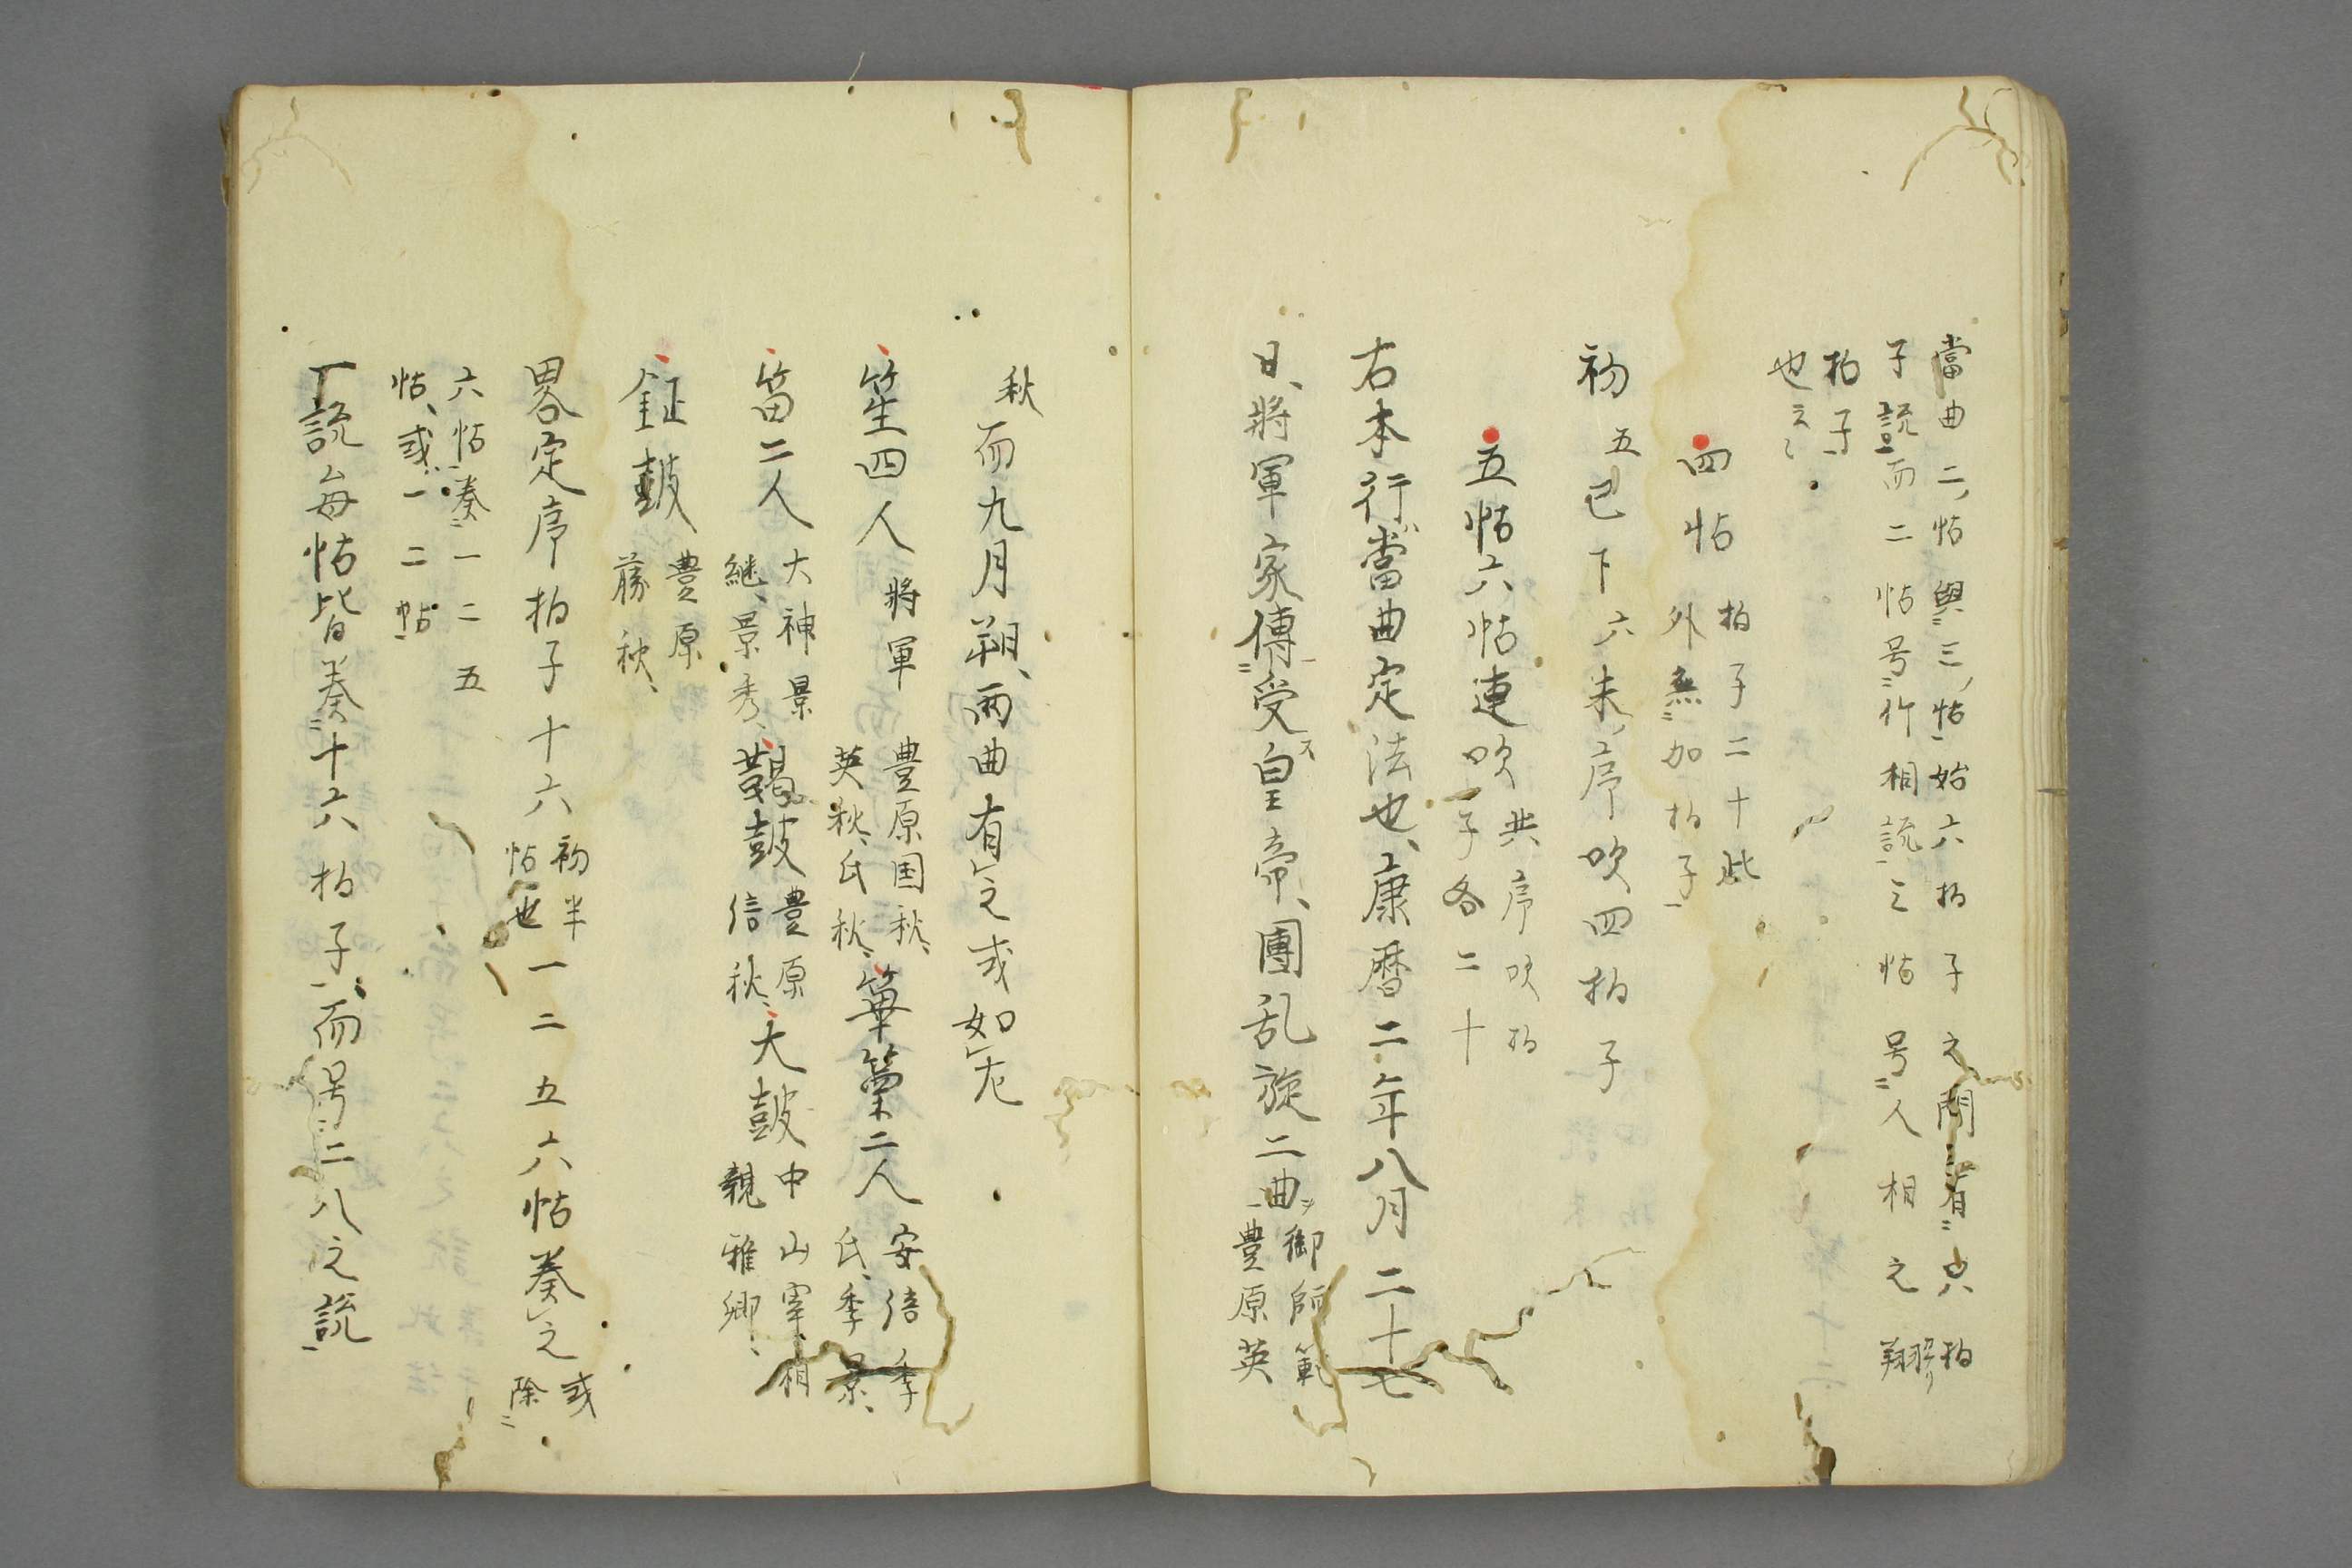 當曲二帖與三帖始六拍子之間省六拍
子説而二帖号作相説三帖号人相之
拍子
也云々
四帖 拍子二十此
外無加拍子
初五已下六末序吹四拍子
五帖六帖連吹 共序吹拍
子各二十
右本行當曲定法也康暦二年八月二十七
日將軍家傳受皇帝團乱旋二曲 御師範
豊原英
秋 而九月朔兩曲有之或如左
笙四人 將軍 豊原国秋
英秋氏秋 篳篥二人 安倍季
氏季景
笛二人 大神景
継景秀 鞨鼓 豊原
信秋 大鼓 中山宰相
親雅卿
鉦鼓 豊原
藤秋
畧定序拍子十六 初半
帖也 一二五六帖奏之 或
除
六帖奏一二五
帖或一二帖
丁説毎帖皆奏十六拍子而号二八之説